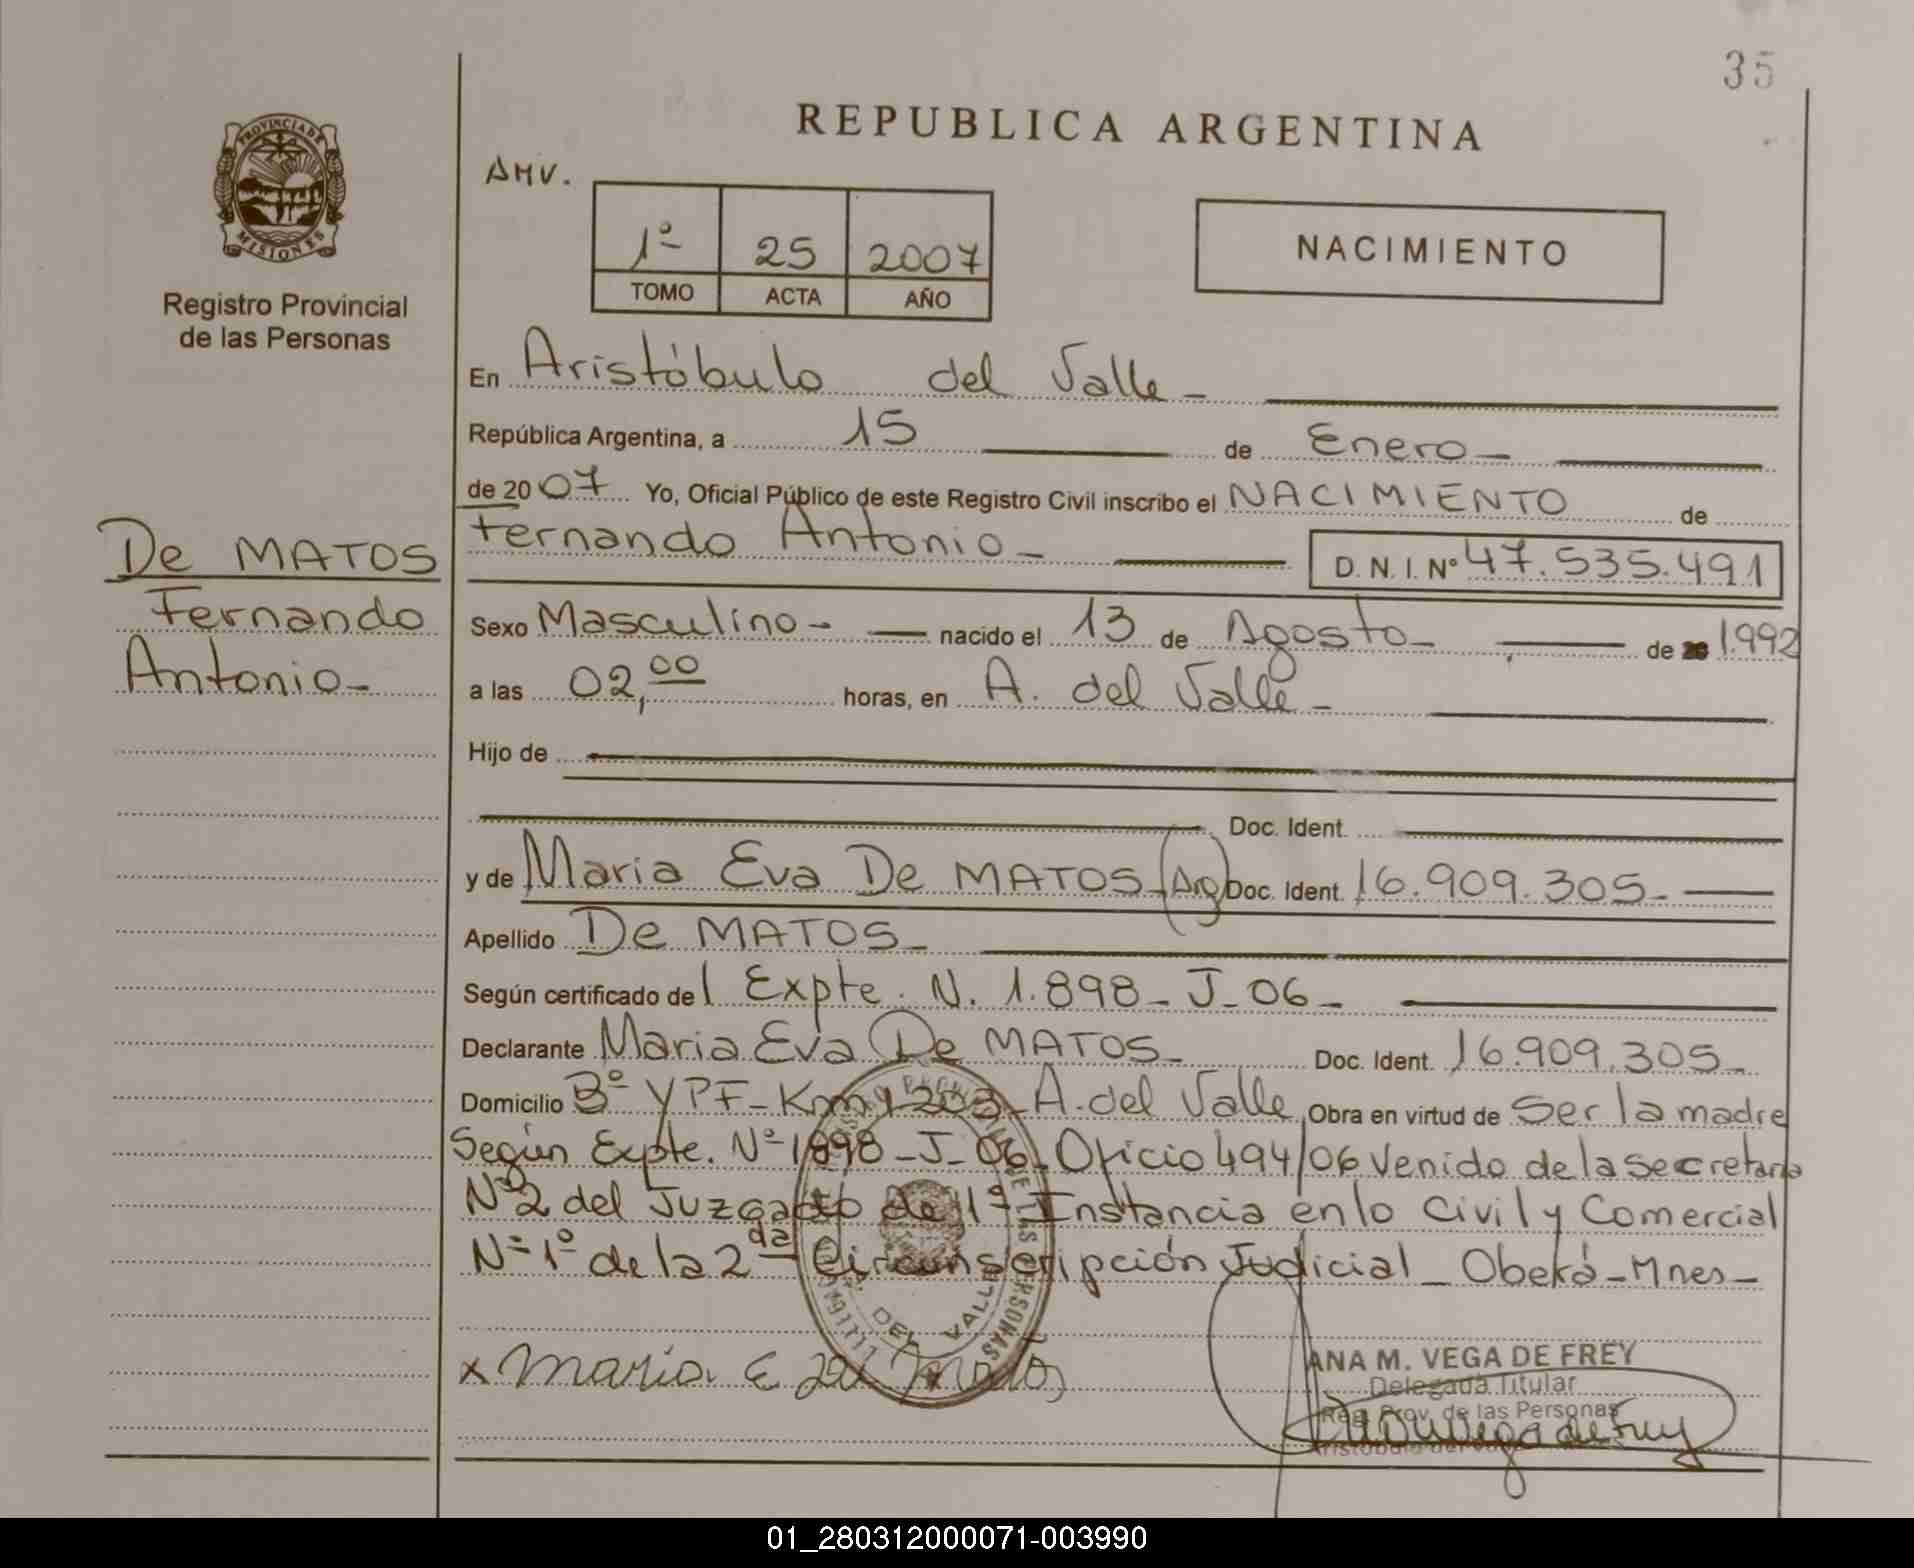 35
REPUBLICA ARGENTINA
PROVINCIA DE
MISIONES
Registro Provincial
de las Personas
AMV.
1º 25 2007
TOMO ACTA AÑO
NACIMIENTO
En Aristóbulo del Valle -
República Argentina, a 15 de Enero -
de 2007 Yo, Oficial Público de este Registro Civil inscribo el NACIMIENTO de
De MATOS
Fernando
Antonio -
Fernando Antonio - D.N.I. Nº 47.535.491
Sexo Masculino - nacido el 13 de Agosto - de 1.992
a las 02,00 horas, en A. del Valle -
Hijo de
Doc. Ident.
y de Maria Eva De MATOS - (Arg) Doc. Ident. 16.909.305 -
Apellido De MATOS -
Según certificado del Expte. N. 1.898 - J - 06 -
Declarante Maria Eva De MATOS - Doc. Ident. 16.909.305 -
Domicilio Bº YPF - Km 1203 - A. del Valle Obra en virtud de Ser la madre
Según Expte. Nº 1898 - J - 06 - Oficio 494/06 Venido de la secretaria
Nº 2 del Juzgado de 1º Instancia en lo Civil y Comercial
Nº 1º de la 2da Circunscripción Judicial - Oberá - Mnes -
DEL VALLE
x Maria E de Matos
ANA M. VEGA DE FREY
Delegada Titular
Reg. Prov. de las Personas
Aristóbulo del Valle
01_280312000071-003990